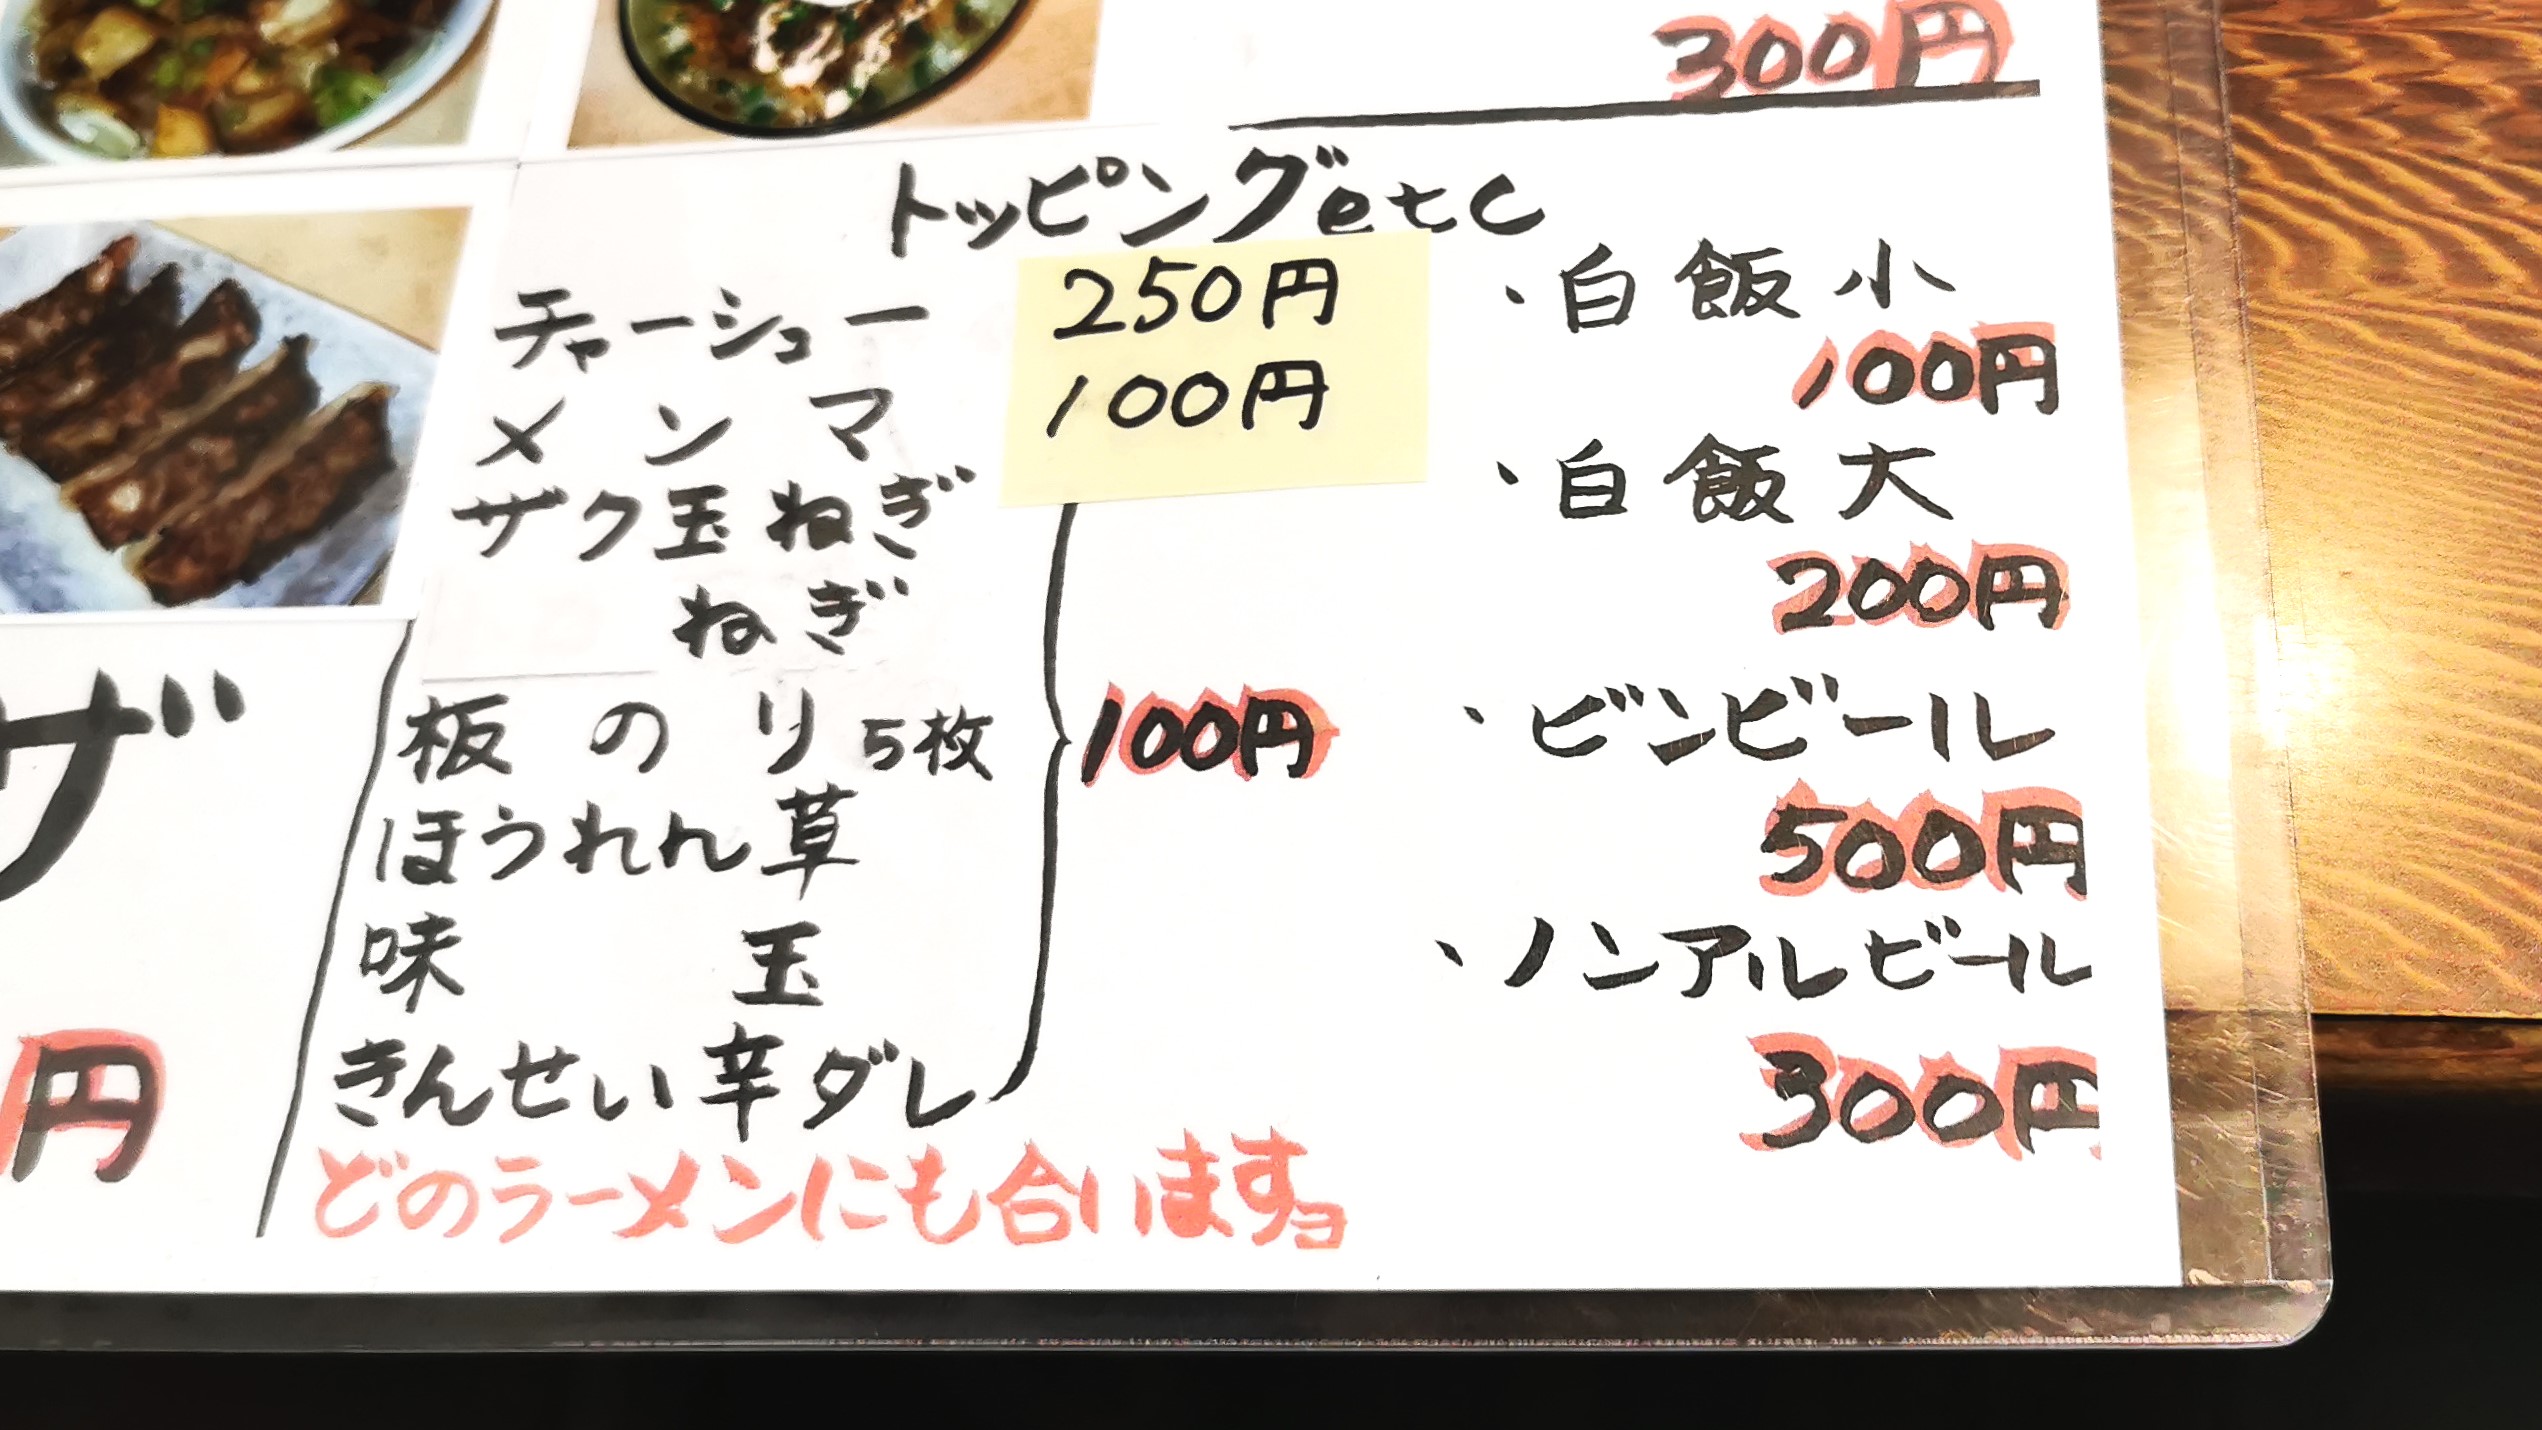 300円
トッピングetc
チャーシュー 250円
メンマ 100円
ザク玉ねぎ
ねぎ
板のり5枚
ほうれん草
味玉
きんせい辛ダレ
100円
どのラーメンにも合いますョ
・白飯小
100円
・白飯大
200円
・ビンビール
500円
・ノンアルビール
300円
ザ
円